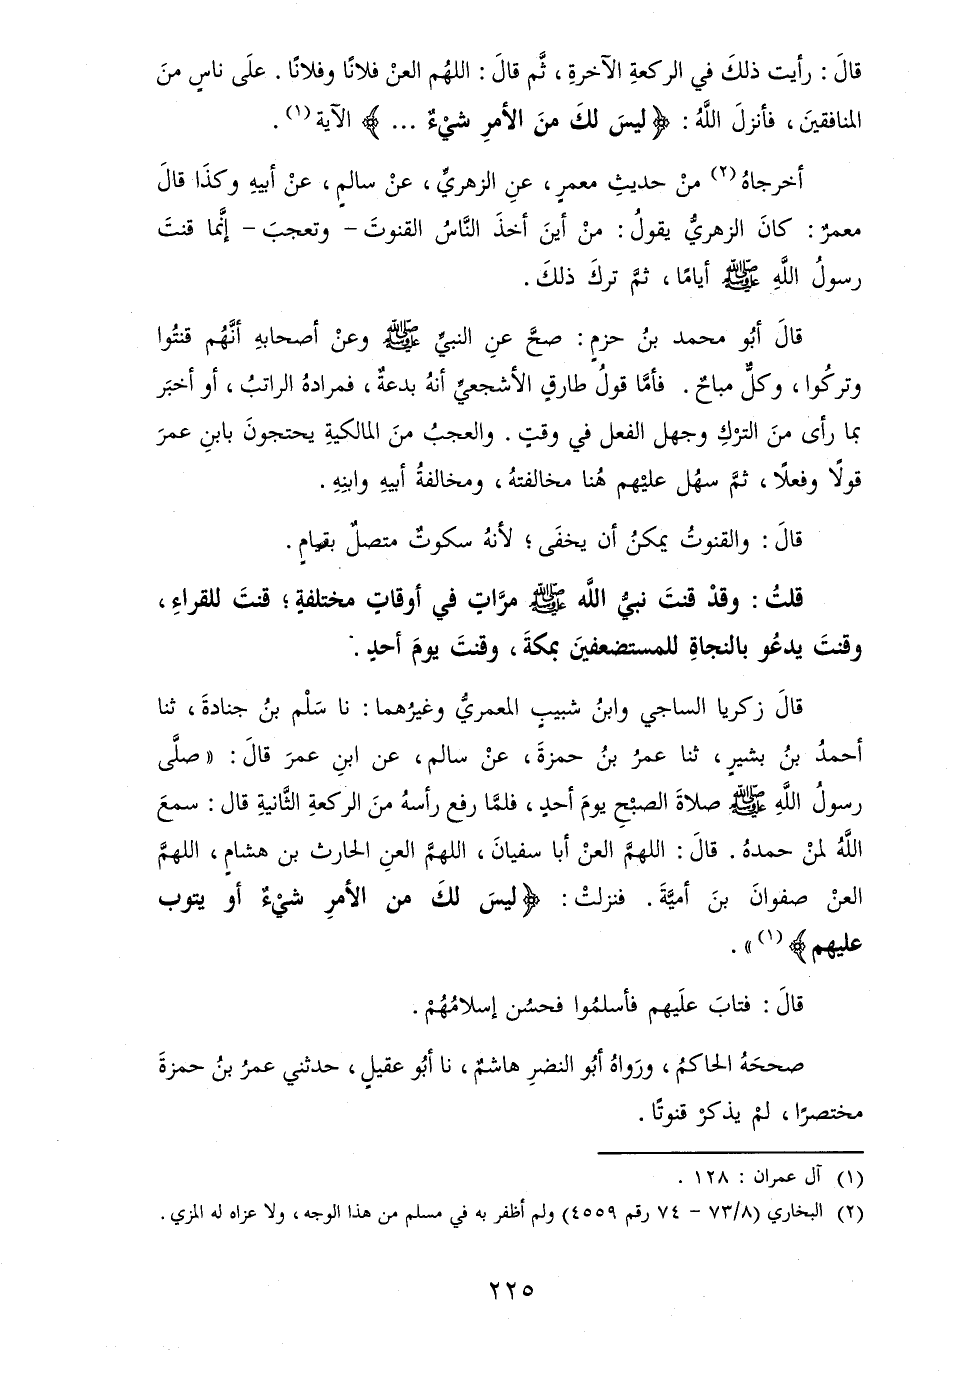 قالَ : رأيت ذلكَ في الركعةِ الآخرةِ ، ثُمَّ قالَ : اللهُم العنْ فلانًا وفلانًا . علَى ناسٍ منَ
المنافقينَ ، فأنزلَ اللَّهُ : ﴿ليسَ لكَ منَ الأمرِ شيْءٌ ... ﴾ الآية (١) .
أخرجاهُ (٢) منْ حديثِ معمرٍ ، عنِ الزهريِّ ، عنْ سالمٍ ، عنْ أبيهِ وكذَا قالَ
معمرٌ : كانَ الزهريُّ يقولُ : منْ أينَ أخذَ النَّاسُ القنوتَ - وتعجبَ - إنَّما قنتَ
رسولُ اللَّهِ ﷺ أيامًا ، ثمَّ تركَ ذلكَ .
قالَ أبُو محمد بنُ حزمٍ : صحَّ عنِ النبيِّ ﷺ وعنْ أصحابهِ أنَّهُم قنتُوا
وتركُوا ، وكلٌّ مباحٌ . فأمَّا قولُ طارقٍ الأشجعيِّ أنهُ بدعةٌ ، فمرادهُ الراتبُ ، أو أخبَر
بما رأى منَ التركِ وجهل الفعل في وقتٍ . والعجبُ منَ المالكيةِ يحتجونَ بابنِ عمرَ
قولًا وفعلًا ، ثمَّ سهُل عليْهم هُنا مخالفتهُ ، ومخالفةُ أبيهِ وابنِهِ .
قالَ : والقنوتُ يمكنُ أن يخفَى ؛ لأنهُ سكوتٌ متصلٌ بقيامٍ .
قلتُ : وقدْ قنتَ نبيُّ اللَّه ﷺ مرَّاتٍ في أوقاتٍ مختلفةٍ ؛ قنتَ للقراءِ ،
وقنتَ يدعُو بالنجاةِ للمستضعفينَ بمكةَ ، وقنتَ يومَ أحدٍ .
قالَ زكريا الساجي وابنُ شبيبٍ المعمريُّ وغيرُهما : نا سَلْم بنُ جنادةَ ، ثنا
أحمدُ بنُ بشيرٍ ، ثنا عمرُ بنُ حمزةَ ، عنْ سالم ، عن ابنِ عمرَ قالَ : « صلَّى
رسولُ اللَّهِ ﷺ صلاةَ الصبْحِ يومَ أحدٍ ، فلمَّا رفع رأسهُ منَ الركعةِ الثَّانيةِ قال : سمعَ
اللَّهُ لمنْ حمدهُ . قالَ : اللهمَّ العنْ أبا سفيانَ ، اللهمَّ العنِ الحارث بن هشامٍ ، اللهمَّ
العنْ صفوانَ بنَ أميَّةَ . فنزلتْ : ﴿ليسَ لكَ من الأمرِ شيْءٌ أو يتوب
عليهم﴾ (١) » .
قالَ : فتابَ علَيهم فأسلمُوا فحسُن إسلامُهُمْ .
صححَهُ الحاكمُ ، ورَواهُ أبُو النضرِ هاشمٌ ، نا أبُو عقيلٍ ، حدثني عمرُ بنُ حمزةَ
مختصرًا ، لمْ يذكرْ قنوتًا .
(١) آل عمران : ١٢٨ .
(٢) البخاري (٧٣/٨ - ٧٤ رقم ٤٥٥٩) ولم أظفر به في مسلم من هذا الوجه ، ولا عزاه له المزي .
٢٢٥